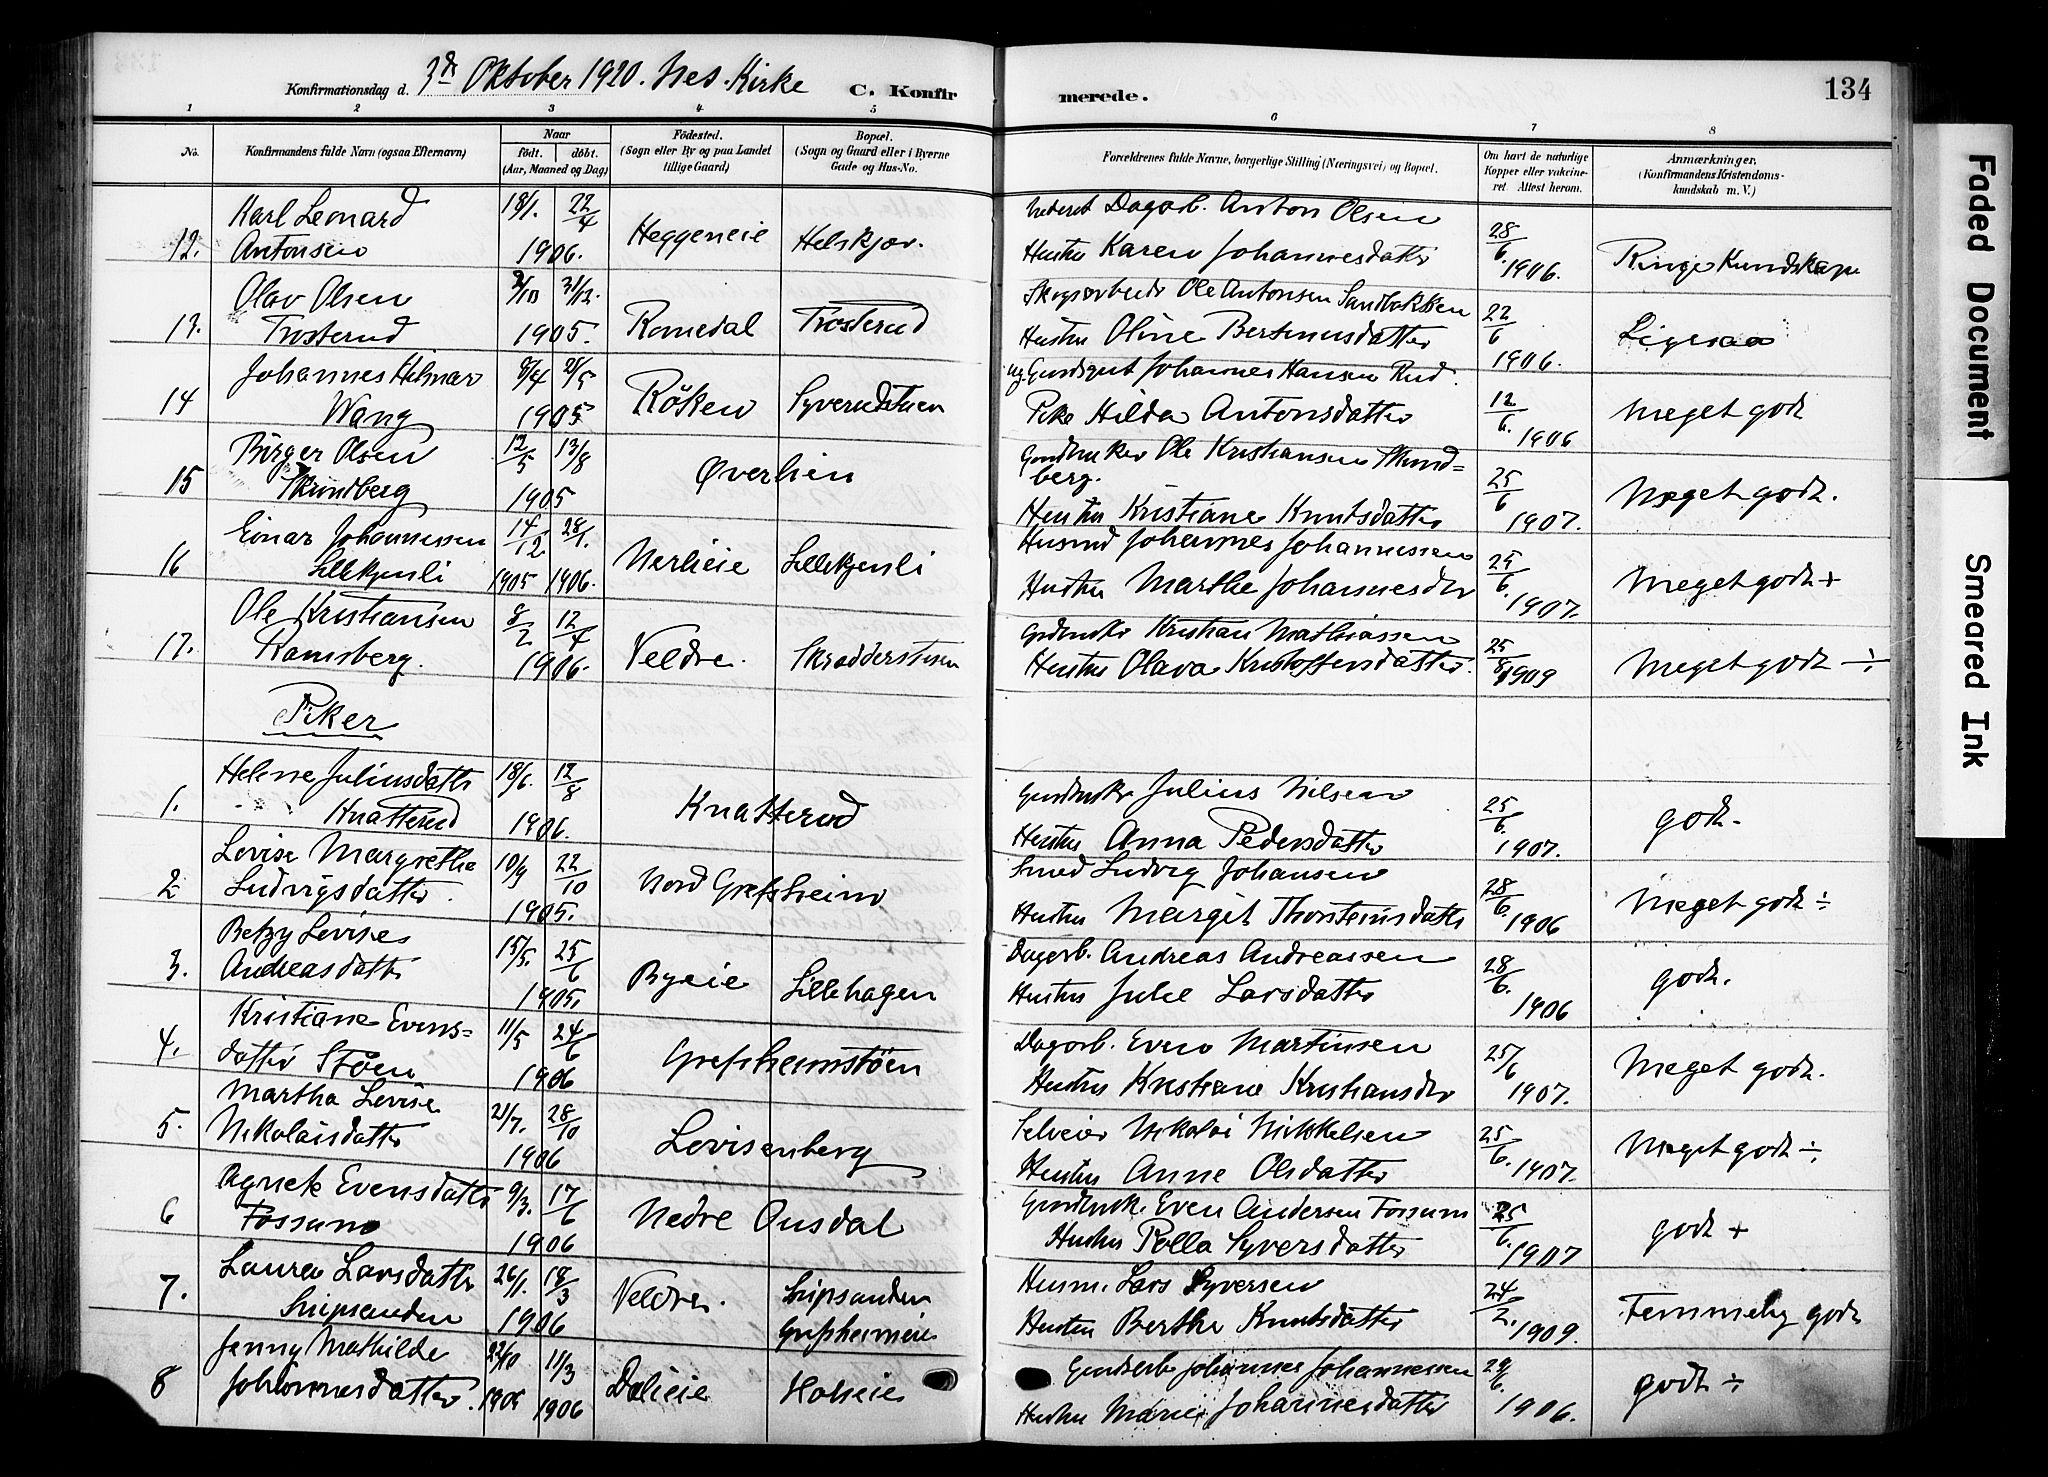 Konfirmationsdag d. 3de Oktober 1920. Nes Kirke C. Konfirmerede. 134
1 2 3 4 5 6 7 8
No. Konfirmandens fulde Navn (ogsaa Efternavn) Naar født. døbt. (Aar, Maaned og Dag) Fødested. (Sogn eller By og paa Landet tillige Gaard) Bopæl. (Sogn og Gaard eller i Byerne Gade og Hus-No. Forældrenes fulde Navne, borgerlige Stilling (Næringsvei) og Bopæl. Om havt de naturlige Kopper eller vakcineret. Attest herom. Anmærkninger. (Konfirmandens Kristendomskundskab m. V.)
Karl Leonard 18/1. 22/4 Dagarb. Anton Olsen 28/6.
12. Antonsen 1906. Heggeneie Helskjær. Hustru Karen Johannesdatter 1906. Ringe Kundskaper
Olav Olsen 31/12. Skogsarbeider Ole Antonsen Sandbakken 22/6
13. Trosterud 1905. Romedal Trosterud Hustru Oline Bersvensdatter 1906. Ligesaa
Johannes Helmar 8/4 21/5 ug. Johannes Hansen Rud. 12/6.
14 Wang 1905 Røken Syverudstuen Pike Hilda Antonsdatter 1906 Meget godt
Birger Olsen 12/5 13/8 Gaardbruker Ole Kristiansen Skundberg. 25/6
15 Skundberg 1905 Øverlien Hustru Kristiane Knutsdatter 1907. Meget godt.
Einar Johannessen 14/12 28/1. Husmd Johannes Johannessen 25/6.
16 Lillekjenli 1905 1906. Nerlieie Lillekjenli Hustru Marthe Johannesdtr 1907. Meget godt +
Ole Kristiansen 8/2 12/4 Grdbruker Kristian Mathiassen 25/8
17. Ramsberg. 1906. Veldre. Skredderstuen Hustru Olava Kristoffersdatter. 1909 Meget godt ÷
Piker
Helene Juliusdatter 18/6. 12/8 Gaardbruker Julius Nilsen 25/6.
1. Knatterud 1906. Knatterud Hustru Anna Pedersdatter 1907. godt.
Lovise Margrethe 10/9 22/10 Smed Ludvig Johansen 28/6.
2 Ludvigsdatter. 1905. Nord Grefsheim Hustru Margit Thorsteinsdatter 1906 Meget godt ÷
Betzy Lovise 15/5. 25/6 Dagarb. Andreas Andreassen 28/6.
3. Andreasdatter 1905. Byeie Lillehagen Hustru Julie Larsdatter 1906 godt.
Kristiane Evens- 11/5 24/6 Dagarb. Even Martinsen 25/6
4. datter Støen 1906 Grefsheimstøen Hustru Kristiane Kristiansdtr 1907. Meget godt.
Martha Lovise 21/7. 28/10 Selveier Nikolai Mikkelsen 25/6.
5. Nikolaisdatter 1906 Lovisenberg Hustru Anne Olsdatter 1907. Meget godt ÷
Evensdatter 9/3. 17/6 Gaardbruk. Even Andersen Fossum 25/6.
6 Fossum 1906 Nedre Ousdal Hustru Pella Syversdatter 1907 godt +
Laura Larsdatter 26/1. 18/3 Husm. Lars Syversen 24/2.
7. Snipsanden 1906 Veldre. Snipsanden Grefsheimeie Hustru Berthe Knutsdatter 1909. Temmelig godt
Jenny Mathilde 22/10 11/3 Johannes Johannessen 29/6.
8 Johannesdatter. 1905 1906 Dalieie Holseie Hustru Marie Johannesdatter 1906. godt ÷
Faded Document
Smeared Ink